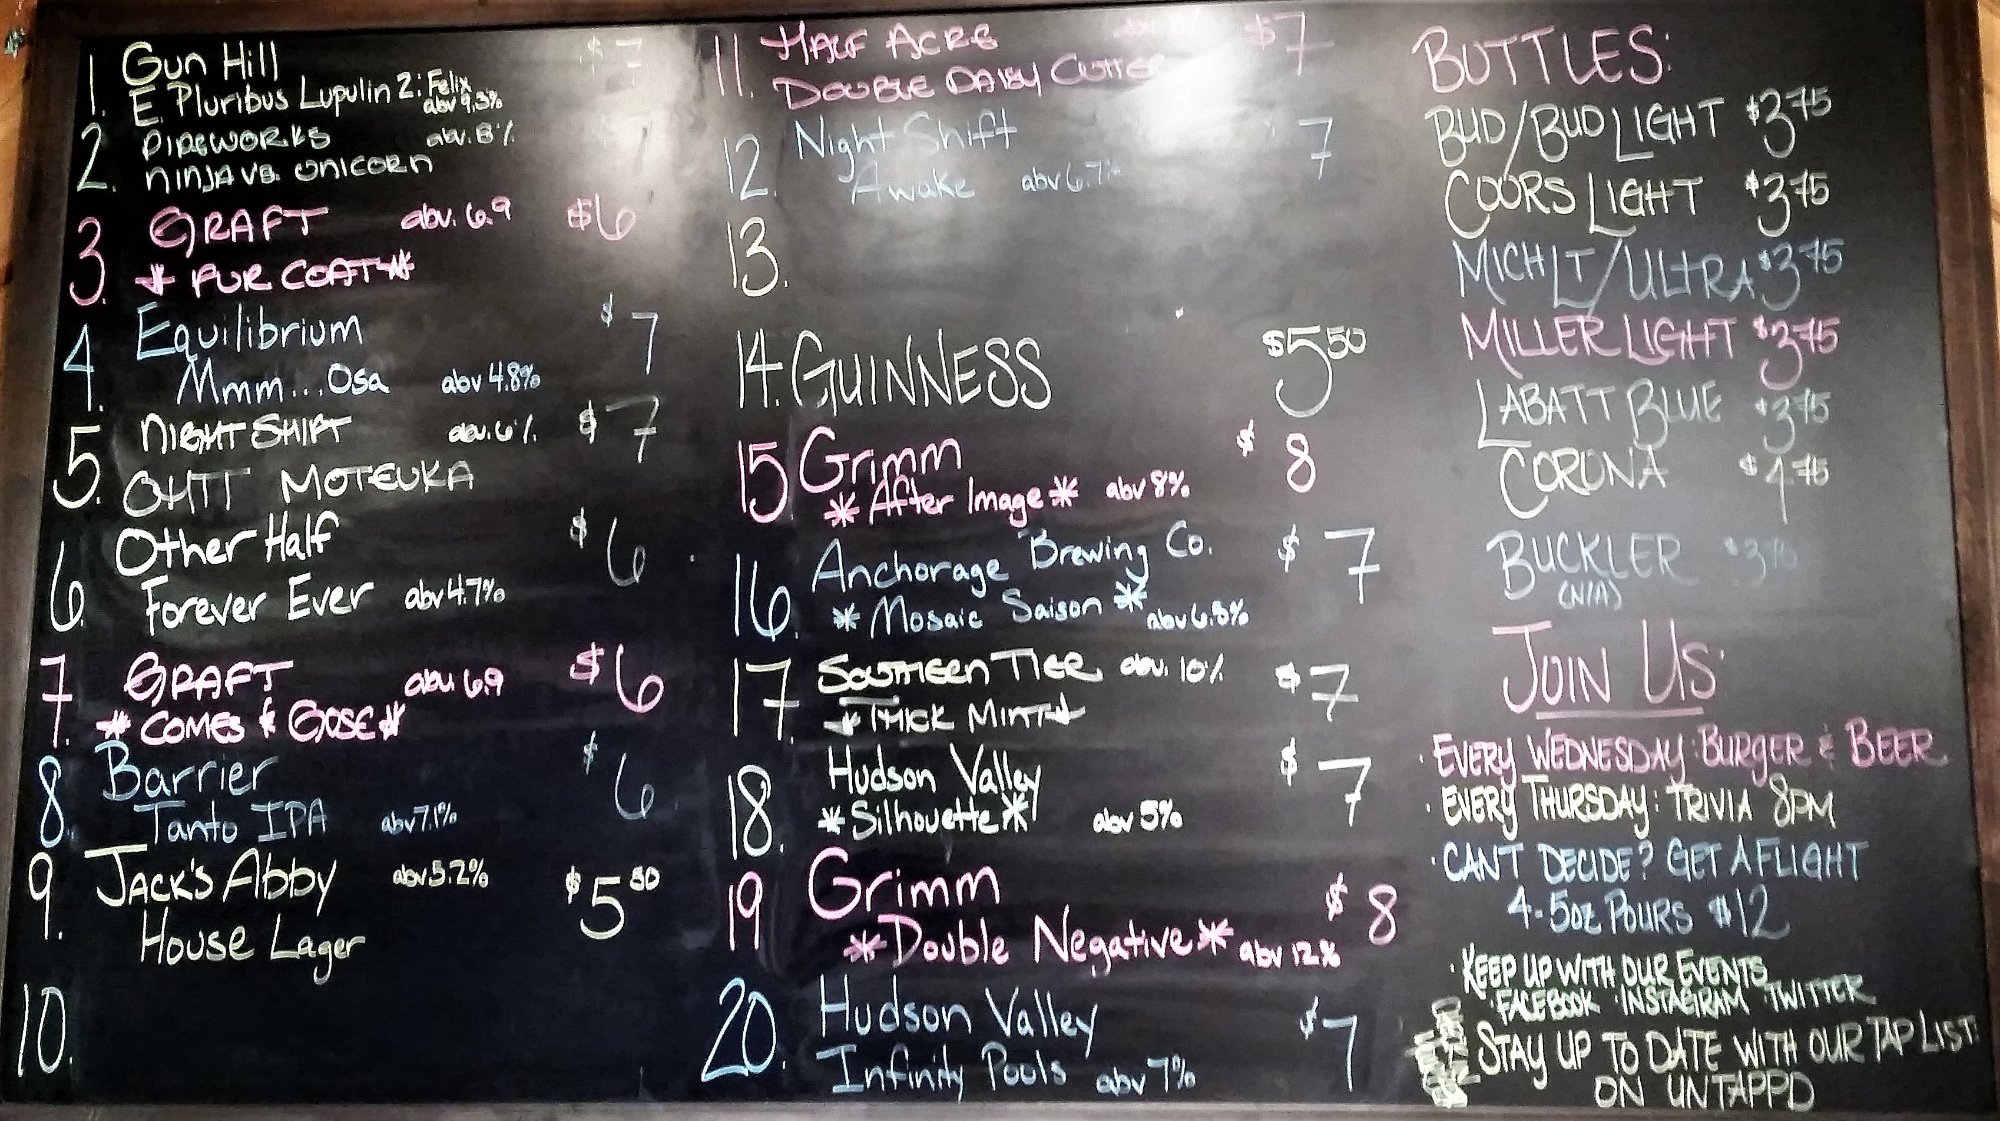 1. Gun Hill $7
E. Pluribus Lupulin 2: Felix
abv 9.3%
2. PIPEWORKS abv. 8% 7
NINJA VS. UNICORN
3. GRAFT abv. 6.9 $6
* FUR COAT *
4. Equilibrium $7
Mmm...Osa abv 4.8%
5. NIGHT SHIFT abv. 6% $7
OHTT MOTEUKA
6. Other Half $6
Forever Ever abv 4.7%
7. GRAFT abv. 6.9 $6
* COMES & GOSE *
8. Barrier $6
Tanto IPA abv 7.1%
9. JACK'S Abby abv 5.2% $5.50
HOUSE Lager
10.
11. HALF ACRE $7
DOUBLE DAISY CUTTER
12. Night Shift 7
Awake abv 6.7%
13.
14. GUINNESS $5.50
15. Grimm $8
* After Image * abv 8%
16. Anchorage Brewing Co. $7
* Mosaic Saison * abv 6.3%
17. SOUTHERN TIER abv. 10% $7
* THICK MINT *
18. Hudson Valley $7
* Silhouette * abv 5%
19. Grimm $8
* Double Negative * abv 12%
20. Hudson Valley $7
Infinity Pools abv 7%
BOTTLES:
BUD/BUD LIGHT $3.75
COORS LIGHT $3.75
MICH LT/ULTRA $3.75
MILLER LIGHT $3.75
LABATT BLUE $3.75
CORONA $4.75
BUCKLER $3.75
(N/A)
JOIN US:
· EVERY WEDNESDAY: BURGER & BEER
· EVERY THURSDAY: TRIVIA 8PM
· CANT DECIDE? GET A FLIGHT
4-5oz POURS $12
· KEEP UP WITH OUR EVENTS
· FACEBOOK · INSTAGRAM · TWITTER
STAY UP TO DATE WITH OUR TAP LIST
ON UNTAPPD